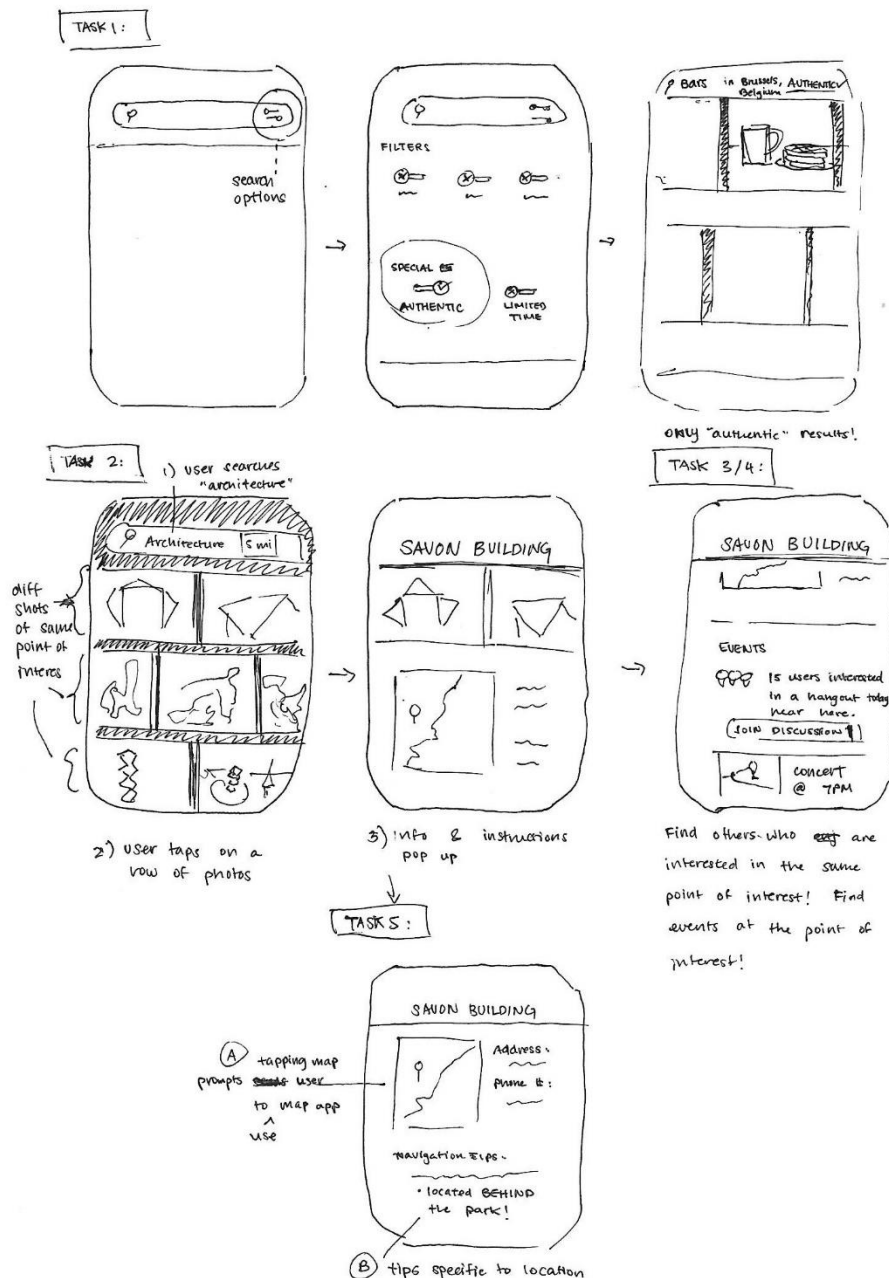 TASK 1:
search
options
FILTERS
SPECIAL
AUTHENTIC
LIMITED
TIME
Bars in Brussels, AUTHENTIC
Belgium
ONLY "authentic" results!
TASK 2:
1) user searches
"architecture"
Architecture 5 mi
diff
shots
of same
point of
interes
2) user taps on a
row of photos
SAVON BUILDING
3) info & instructions
pop up
TASK 3/4:
SAVON BUILDING
EVENTS
15 users interested
in a hangout today
near here.
JOIN DISCUSSION
concert
@ 7PM
Find others who are
interested in the same
point of interest! Find
events at the point of
interest!
TASK 5:
SAVON BUILDING
Address:
Phone #:
Navigation Tips:
• located BEHIND
the park!
A tapping map
prompts user
to map app
^
use
B tips specific to location